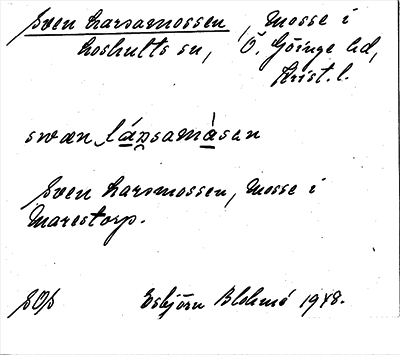 Sven Larsamossen, Mosse i
Loshults sn, Ö. Göinge hd,
Krist. l.
swæn lársamåsen
Sven Larsmossen, Mosse i
Marestorp.
Esbjörn 1948.